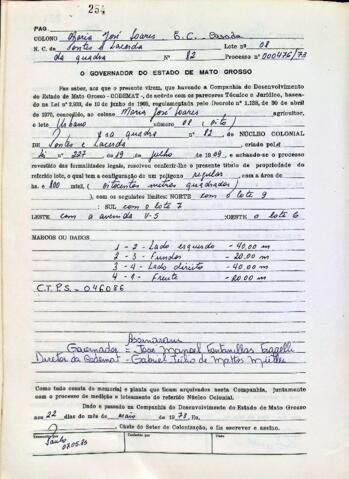 254
PAG.
COLONO Maria José Soares E.C. Casada
N. C. de Pontes e Lacerda Lote nº 08
da quadra Nº 82 Processo nº 000476/73
O GOVERNADOR DO ESTADO DE MATO GROSSO
Faz saber, aos que o presente virem, que havendo a Companhia de Desenvolvimento
do Estado de Mato Grosso - CODEMAT -, de acôrdo com os pareceres Técnico e Jurídico, basea-
da Lei nº 2.933, de 10 de junho de 1969, regulamentada pelo Decreto nº 1.138, de 30 de abril
de 1970, concedido, ao colono Maria José Soares agricultor,
o lote Urbano número 08 (oito)
da quadra nº 82, do NÚCLEO COLONIAL
DE Pontes e Lacerda criado pela
Lei nº 227 de 19 de julho de 1909, e achando-se o processo
revestido das formalidades legais, resolveu conferir-lhe o presente título de propriedade do
referido lote, o qual tem a configuração de um polígono regular com a área de
hs. e 800 mts2, ( oitocentos metros quadrados )
com os seguintes limites: NORTE com o lote 9
: SUL com o lote 7
LESTE com a avenida V-5 :OESTE o lote 6
MARCOS OU DADOS
1 - 2 - Lado esquerdo - 40.00 m
2 - 3 - Fundos - 20.00 m
3 - 4 - Lado direito - 40.00 m
4 - 1 - Frente - 20.00 m
C.T.P.S. - 046086
Assinaram
Governador = José Manoel Fontanillas Fragelli
Diretor da Codemat - Gabriel Júlio de Mattos Müller
Como tudo consta do memorial e planta que ficam arquivados nesta Companhia, juntamente
com o processo de medição e loteamento do referido Núcleo Colonial.
Dado e passado na Companhia de Desenvolvimento do Estado de Mato Grosso
aos 22 dias do mês de maio de 1973. Eu,
, Chefe do Setor de Colonização, o fiz escrever e assino.
07.05.85